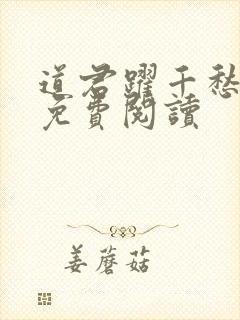 道君躍千愁
免費閱讀
姜蘑菇